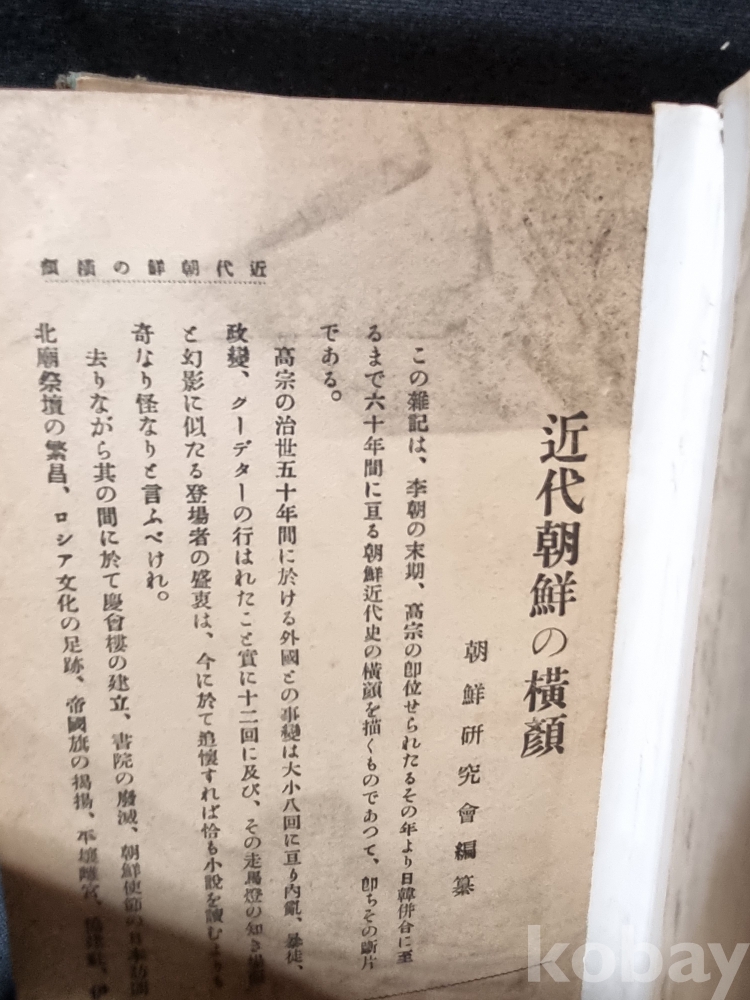 近代朝鮮の横顔
近代朝鮮の横顔
朝鮮研究會編纂
この雜記は、李朝の末期、高宗の卽位せられたるその年より日韓併合に至
るまで六十年間に亘る朝鮮近代史の横顔を描くものであつて、卽ちその斷片
である。
高宗の治世五十年間に於ける外國との事變は大小八回に亘り內亂、暴徒、
政變、クーデターの行はれたこと實に十二回に及び、その走馬燈の如き
と幻影に似たる登場者の盛衷は、今に於て追懷すれば恰も小說を讀むよりも
奇なり怪なりと言ふべけれ。
去りながら其の間に於て慶會樓の建立、書院の廢滅、朝鮮使節の日本訪問
北廟祭壇の繁昌、ロシア文化の足跡、帝國旗の揭揚、離宮、
kobay